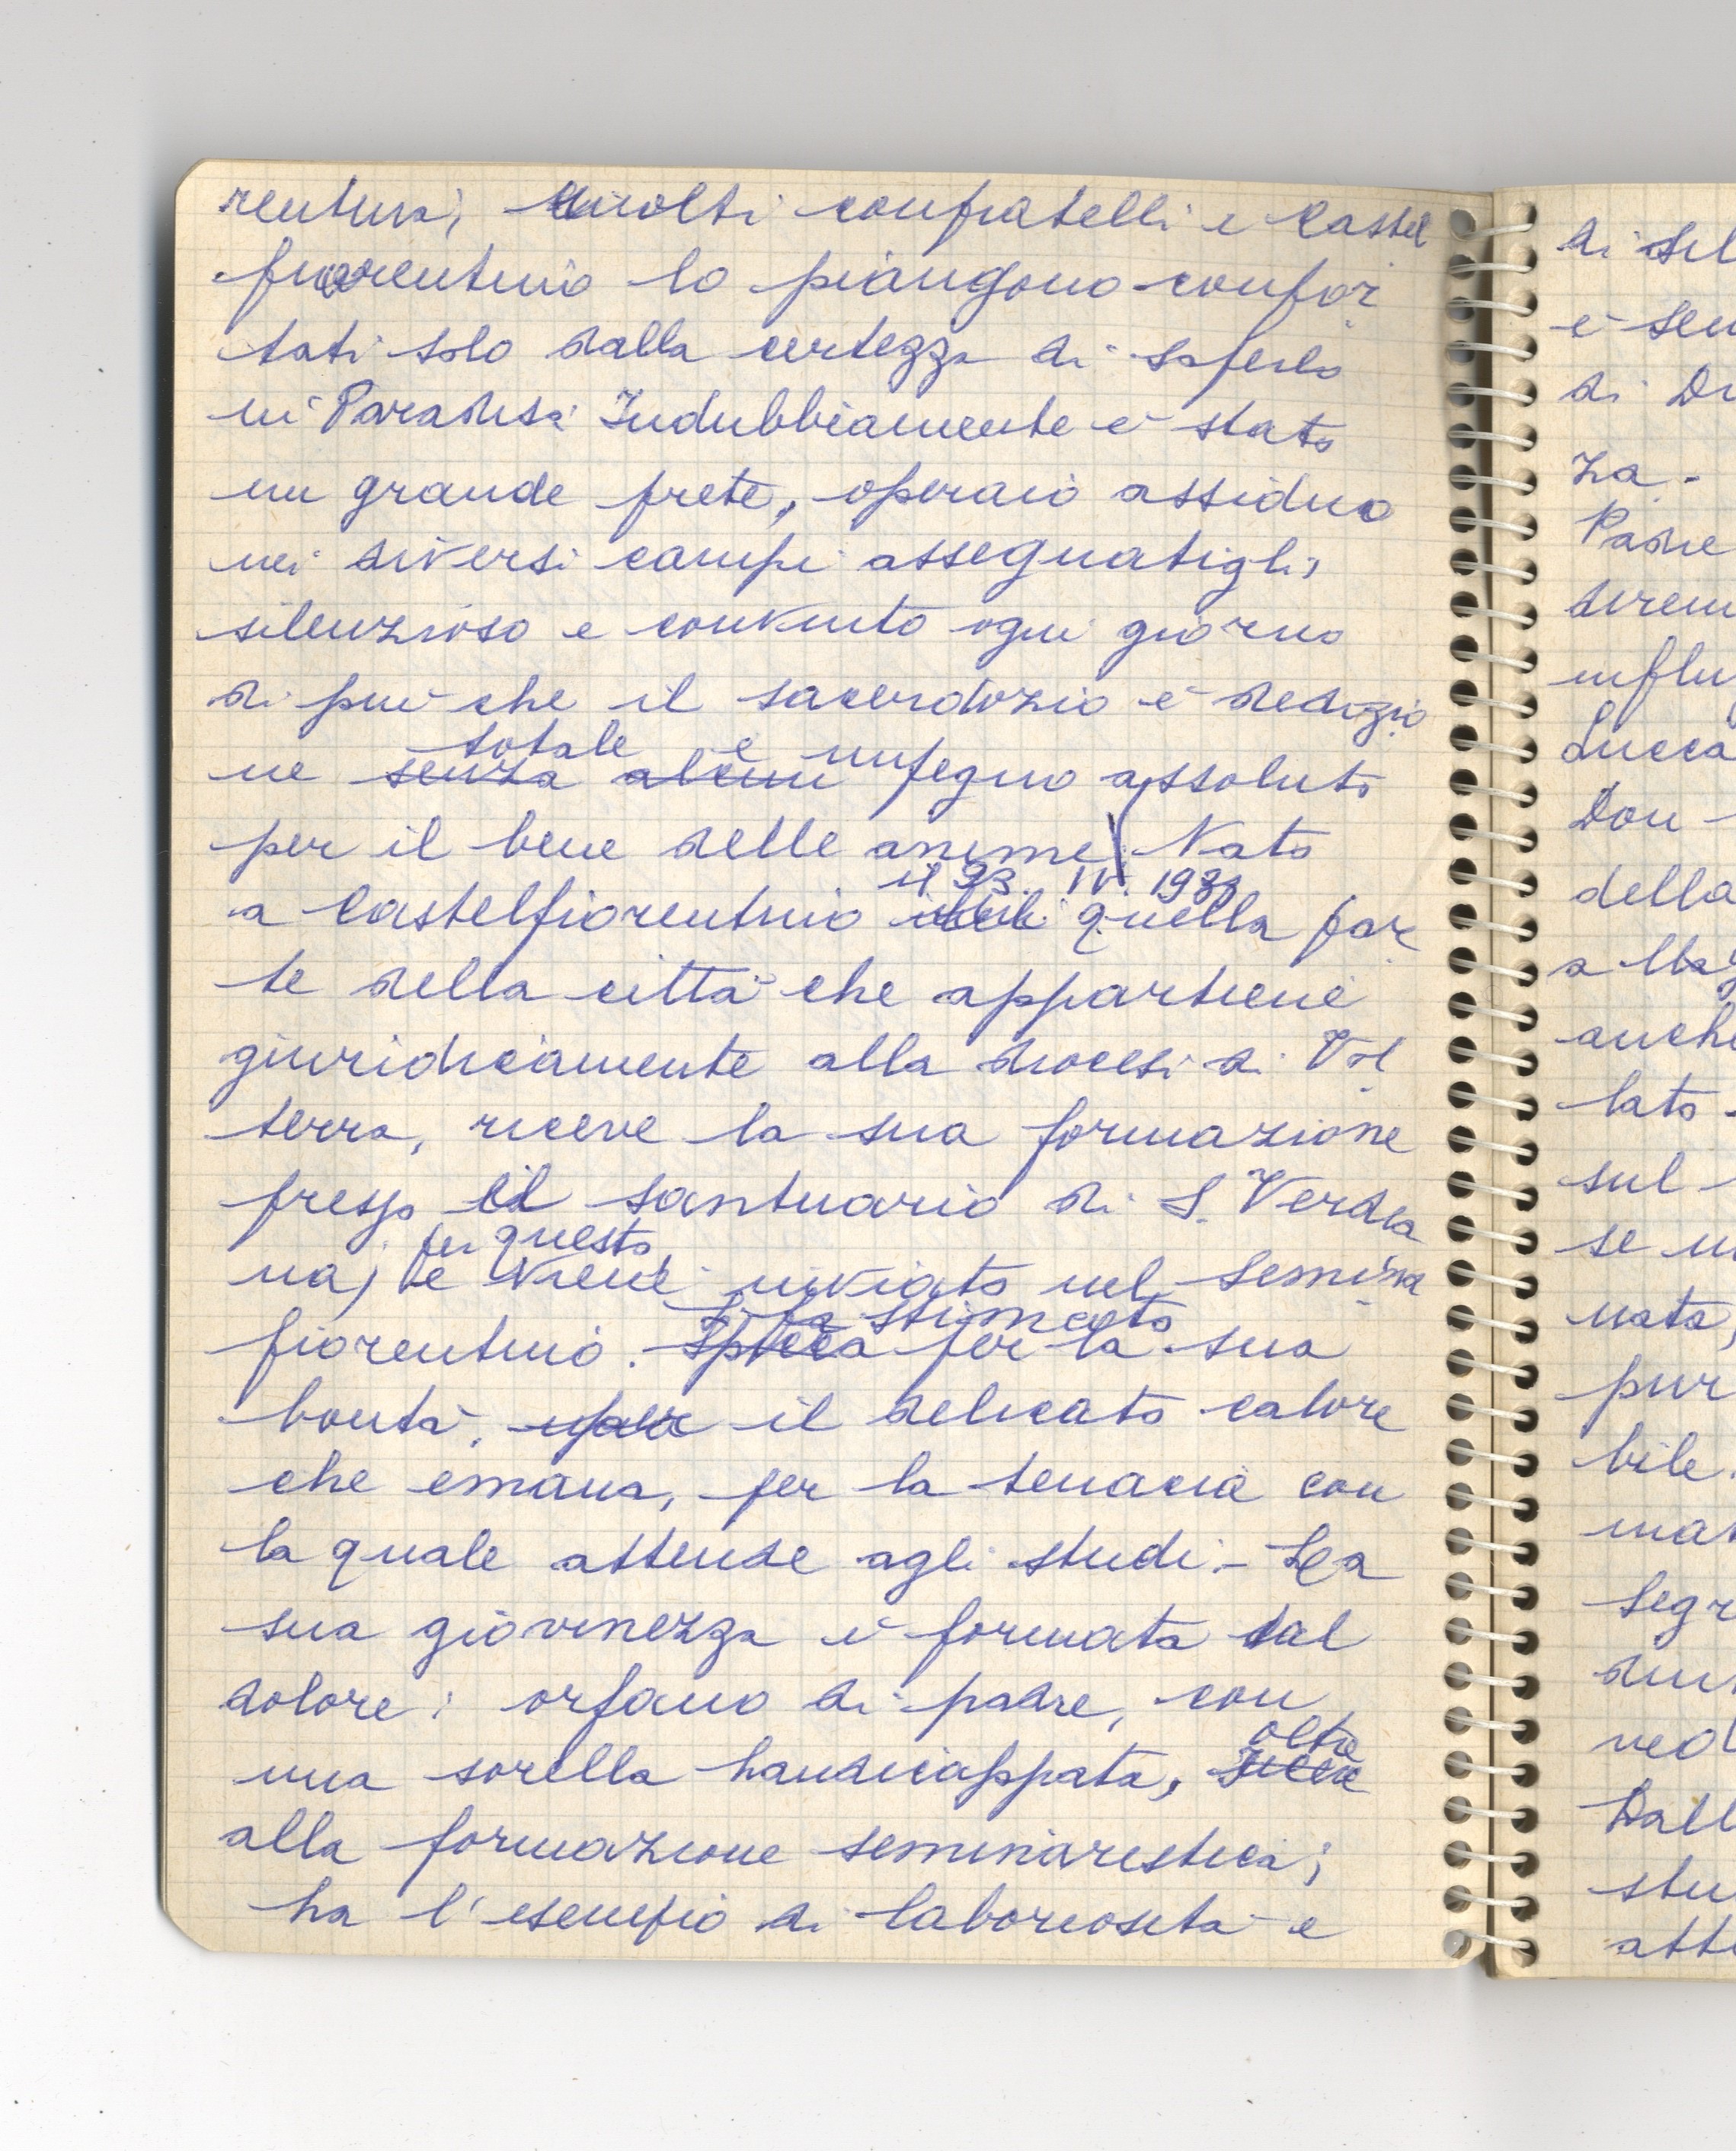 rentina, molti confratelli e Castel
fiorentino lo piangono confor
tati solo dalla certezza di saperlo
in Paradiso: Indubbiamente è stato
un grande prete, operaio assiduo
nei diversi campi assegnatigli,
silenzioso e convinto ogni giorno
di più che il sacerdozio è dedizio
totale e
ne senza alcun impegno assoluto
per il bene delle anime. Nato
il 23. IV.
a Castelfiorentino quella par
te della città che appartiene
giuridicamente alla diocesi di Vol
terra, riceve la sua formazione
presso il santuario di S. Verdia
per questo
na, e viene inviato nel Semina
si fa stimato
fiorentino. Spicca per la sua
bontà, il delicato calore
che emana, per la tenacia con
la quale attende agli studi. - La
sua giovinezza è formata dal
dolore: orfano di padre, con
oltre
una sorella handicappata,
alla formazione seminaristica;
ha l'esempio di laboriosità e
di
e
di
za.
Padre
Lucca
Don
della
a
anche
lato
sul
se
nata,
pur
bile.